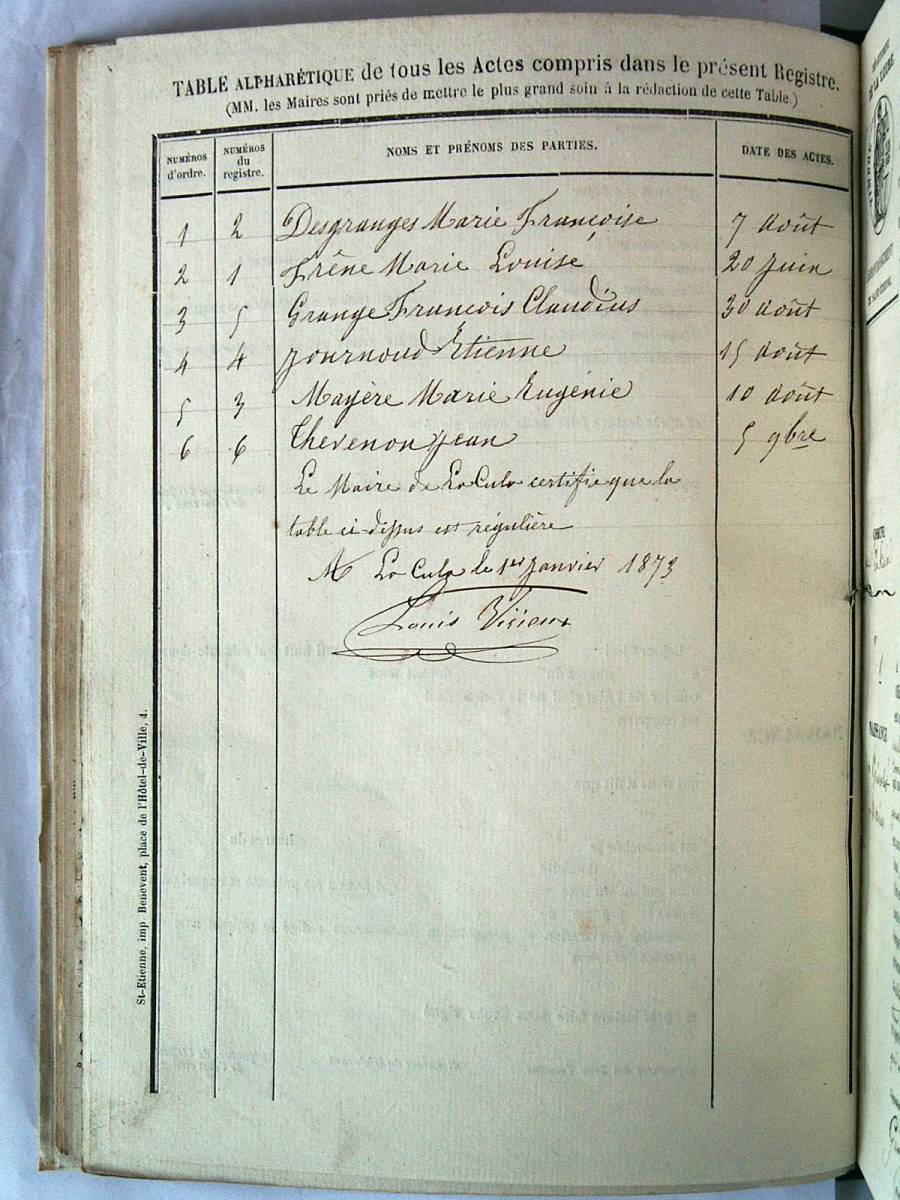 TABLE ALPHARÉTIQUE de tous les Actes compris dans le présent Registre.
(MM. les Maires sont priés de mettre le plus grand soin à la rédaction de cette Table.)
NUMÉROS d'ordre. NUMÉROS du registre. NOMS ET PRÉNOMS DES PARTIES. DATE DES ACTES.
1 2 Desgranges Marie Françoise 7 août
2 1 Frêne Marie Louise 20 Juin
3 5 Grange François Claudius 30 août
4 4 Journoud Etienne 15 août
5 3 Mayère Marie Eugénie 10 août
6 6 Thevenon Jean 5 9bre
Le Maire de La Cula certifie que la
table ci-dessus est régulière
La Cula le 1er Janvier 1873
Louis
St-Etienne, imp. Benevent, place de l'Hôtel-de-Ville, 4.